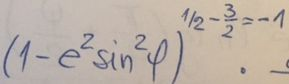 (1-e²sin²φ)^{1/2-3/2=-1} ·